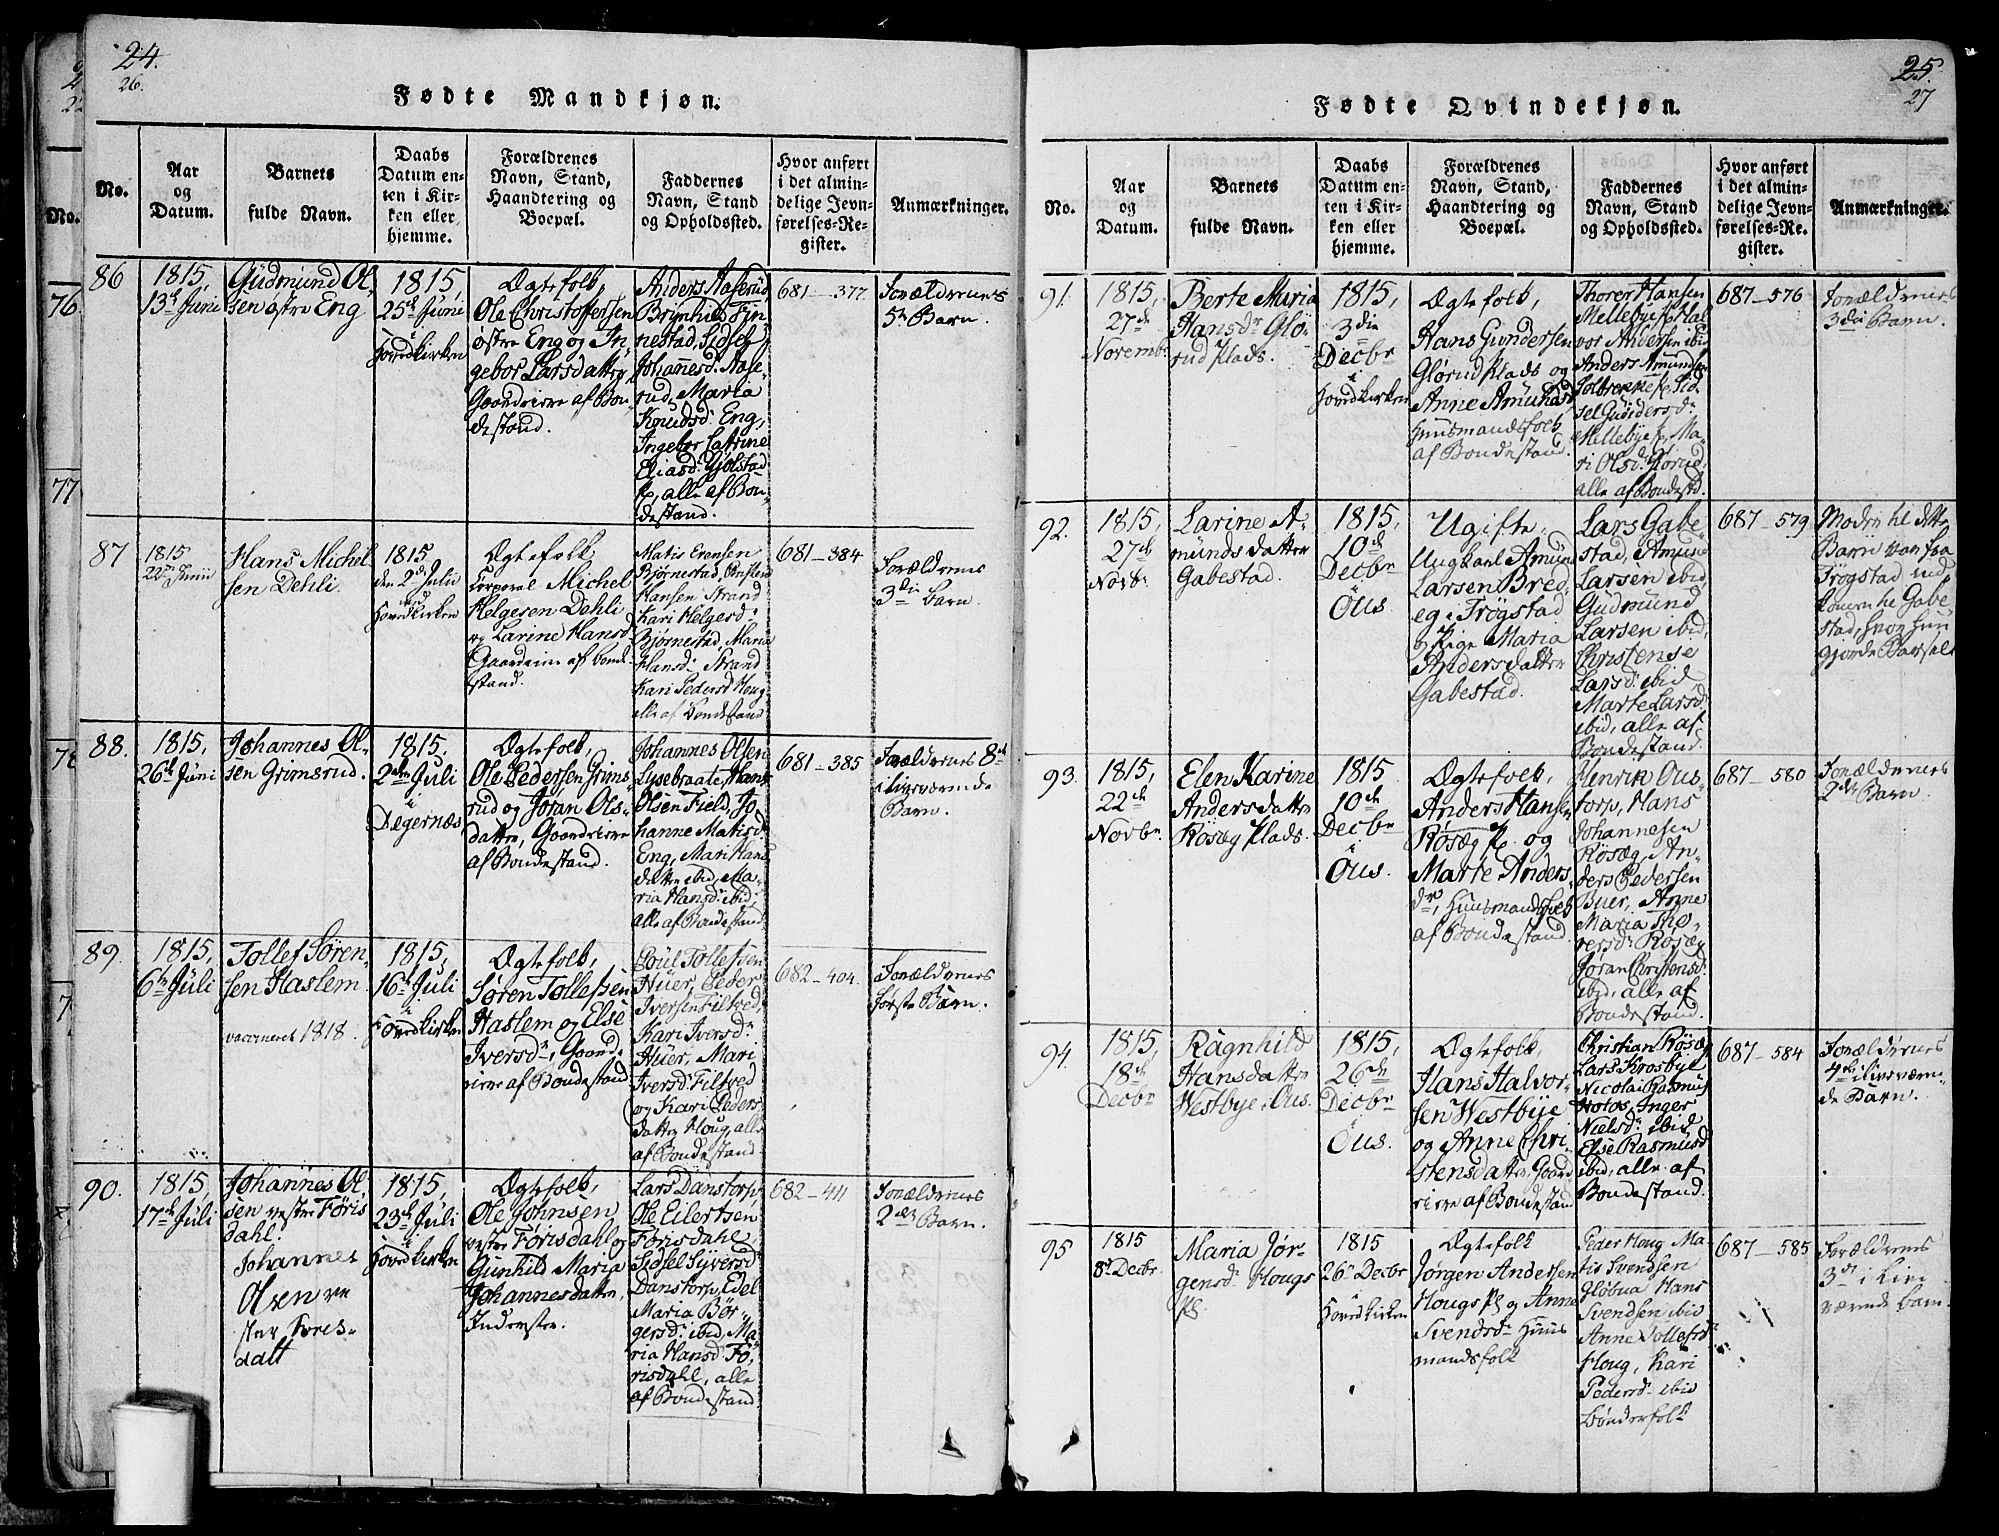 24.
26.
Fødte Mandkjøn.
No.
Aar
og
Datum.
Barnets
fulde Navn.
Daabs
Datum en-
ten i Kir-
ken eller
hjemme.
Forældrenes
Navn, Stand,
Haandtering og
Boepæl.
Faddernes
Navn, Stand
og Opholdssted.
Hvor anført
i det almin-
delige Jevn-
førelses-Re-
gister.
Anmærkninger.
86
1815,
13d Juni
Gudmund Ol-
sen østre Eng
1815,
25d Juni
i
Hovedkirken
Ægtefolk,
Ole Christoffersen
østre Eng og In-
gebor Larsdatter,
Gaardeiere af Bon-
destand.
Anders Aaserud
Brynhild Fin-
nestad, Sidsel
Johannesd. Aase-
rud, Maria
Knudsd. Eng,
Ingebor Catrine
Eliasd. Gjølstad
alle af Bon-
destand.
681-377.
Forældrenes
5te Barn.
87
1815
22de Junii
Hans Michel
sen Dehli.
1815
den 2de Julii
ved
Hovedkirken
Ægtefolk
Corporal Michel
Helgesen Dehli
og Larine Hansd
Gaardeiere af bonde-
stand.
Matis Evensen
Bjørnestad,
Hansen Strand
Kari Helgesd
Bjørnestad, Maria
Hansd. Strand
Kari Pedersd Houg
alle af Bondestand
681-384
Forældrenes
3die barn
88.
1815,
26d Juni
Johannes Ol-
sen Grimsrud.
1815.
2den Juli
i
Degernæs
Ægtefolk,
Ole Pedersen Grims-
rud og Jøran Ols-
datter, Gaardeiere
af Bondestand.
Johannes Olsen
Lysebraate, Hans
Olsen Field, Jo-
hanne Matisd
Eng, Mari Hans
datter ibid, Ma-
ria Hansd. ibid,
alle af Bondestand
681-385
Forældrenes 8de
i liveværende
Barn.
89.
1815,
6te Juli
Tollef Søren-
sen Haslem.
vaccineret 1818.
1815,
16d Juli
i
Hovedkirken
Ægtefolk,
Søren Tollefsen
Haslem og Else
Iversdr, Gaard-
eiere af Bondestand
Poul Tollefsen
Huer, Peder
Iversen Filtved,
Kari Iversd.
Huer, Mari
Iversd. Filtved
og Kari Peders-
datter Houg, alle
af Bondestand
682-404.
Forældrenes
første Barn.
90.
1815,
17d Juli
Johannes Ol-
sen vestre Føris
dahl.
Johannes
Olsen ve
ster Føres-
dalt
1815,
23d Juli
i
Hovedkirken
Ægtefolk,
Ole Johnsen
vestre Førisdahl og
Gunhild Maria
Johannesdatter,
Inderster.
Lars Danstorp,
Ole Eilertsen
Førisdahl,
Sidsel Syversd
Danstorp, Edel
Maria Bør-
gersd. ibid, Ma-
ria Hansd. Fø-
risdahl, alle
af Bondestand.
682-411
Forældrenes
2det Barn.
25.
27
Fødte Qvindekjøn.
No.
Aar
og
Datum.
Barnets
fulde Navn.
Daabs
Datum en-
ten i Kir-
ken eller
hjemme.
Forældrenes
Navn, Stand,
Haandtering og
Boepæl.
Faddernes
Navn, Stand
og Opholdssted.
Hvor anført
i det almin-
delige Jevn-
førelses-Re-
gister.
Anmærkninger.
91.
1815,
27de
Novembr
Berte Maria
Hansdr Glø-
rud Plads.
1815,
3die
Decbr
i
Hovedkirken
Ægtefolk,
Hans Gundersen
Glørud Plads og
Anne Amundsd
Huusmandsfolk
af Bondestand.
Thorer Hansen
Mellebye, Hal-
vor Andersen ibid
Anders Amundsen
Sid-
sel
Mellebye, Ma-
ri Olsd. Glørud,
alle af Bondestd.
687-576
Forældrenes
3die Barn.
92.
1815,
27de
Novbr
Larine A-
munds datter
Gabestad.
1815,
10de
Decbr
i
Øus.
Ugifte,
Ungkarl Amund
Larsen Bred-
eg i Trøgstad
og Pige Maria
Andersdatter
Gabestad.
Lars Gabe-
stad, Amund
Larsen ibid,
Gudmund
Larsen ibid,
Christense
Larsd. ibid,
Marte Larsd
ibid, alle af
Bondestand.
687-579
Moderen til dette
Barn var fra
Trøgstad
Gabe-
stad, hvor hun
gjorde Barsel.
93.
1815,
22de
Novbr.
Elen Karine
Andersdatter
Røsæg Plads.
1815
10de
Decbr
i
Øus.
Ægtefolk,
Anders Hansen
Røsæg Pl. og
Marte Anders-
dr, Huusmandsfolk
af Bondestand.
Henrik Ous-
torp, Hans
Johannesen
Røsæg, An-
ders Pedersen
Buer, Anne
Maria Tho-
rersd. Røsæg
Jøran Christensd.
ibid, alle af
Bondestand.
687-580
Forældrenes
2det Barn.
94.
1815,
18de
Decbr
Ragnhild
Hansdatter
Westbye i Øus.
1815,
26de
Decbr
i
Øus.
Ægtefolk,
Hans Halvor-
sen Westbye
og Anne Chri-
stensdatter, Gaard
eiere af Bondestand
Christian Røsæg
Lars Krosbye
Nicolai Rasmus
Holøs, Inger
Nielsd. ibid
Else Rasmusd
ibid, alle af
Bondestand.
687-584
Forældrenes
4de i liveværen-
de Barn.
95
1815
8de Decbr
Maria Jør-
gensd. Hougs
Pl.
1815
26de Decbr
Hovedkirken
Ægtefolk
Jørgen Andersen
Hougs Pl og Anne
Svendsdr Huus
mandsfolk
Peder Houg Ma-
tis Svendsen
Gløbua Hans
Svendsen ibid
Anne Tollefsd
Houg, Kari
Pedersd. ibid
Bønderfolk
687-585
Forældrenes
3de i live
værende barn.